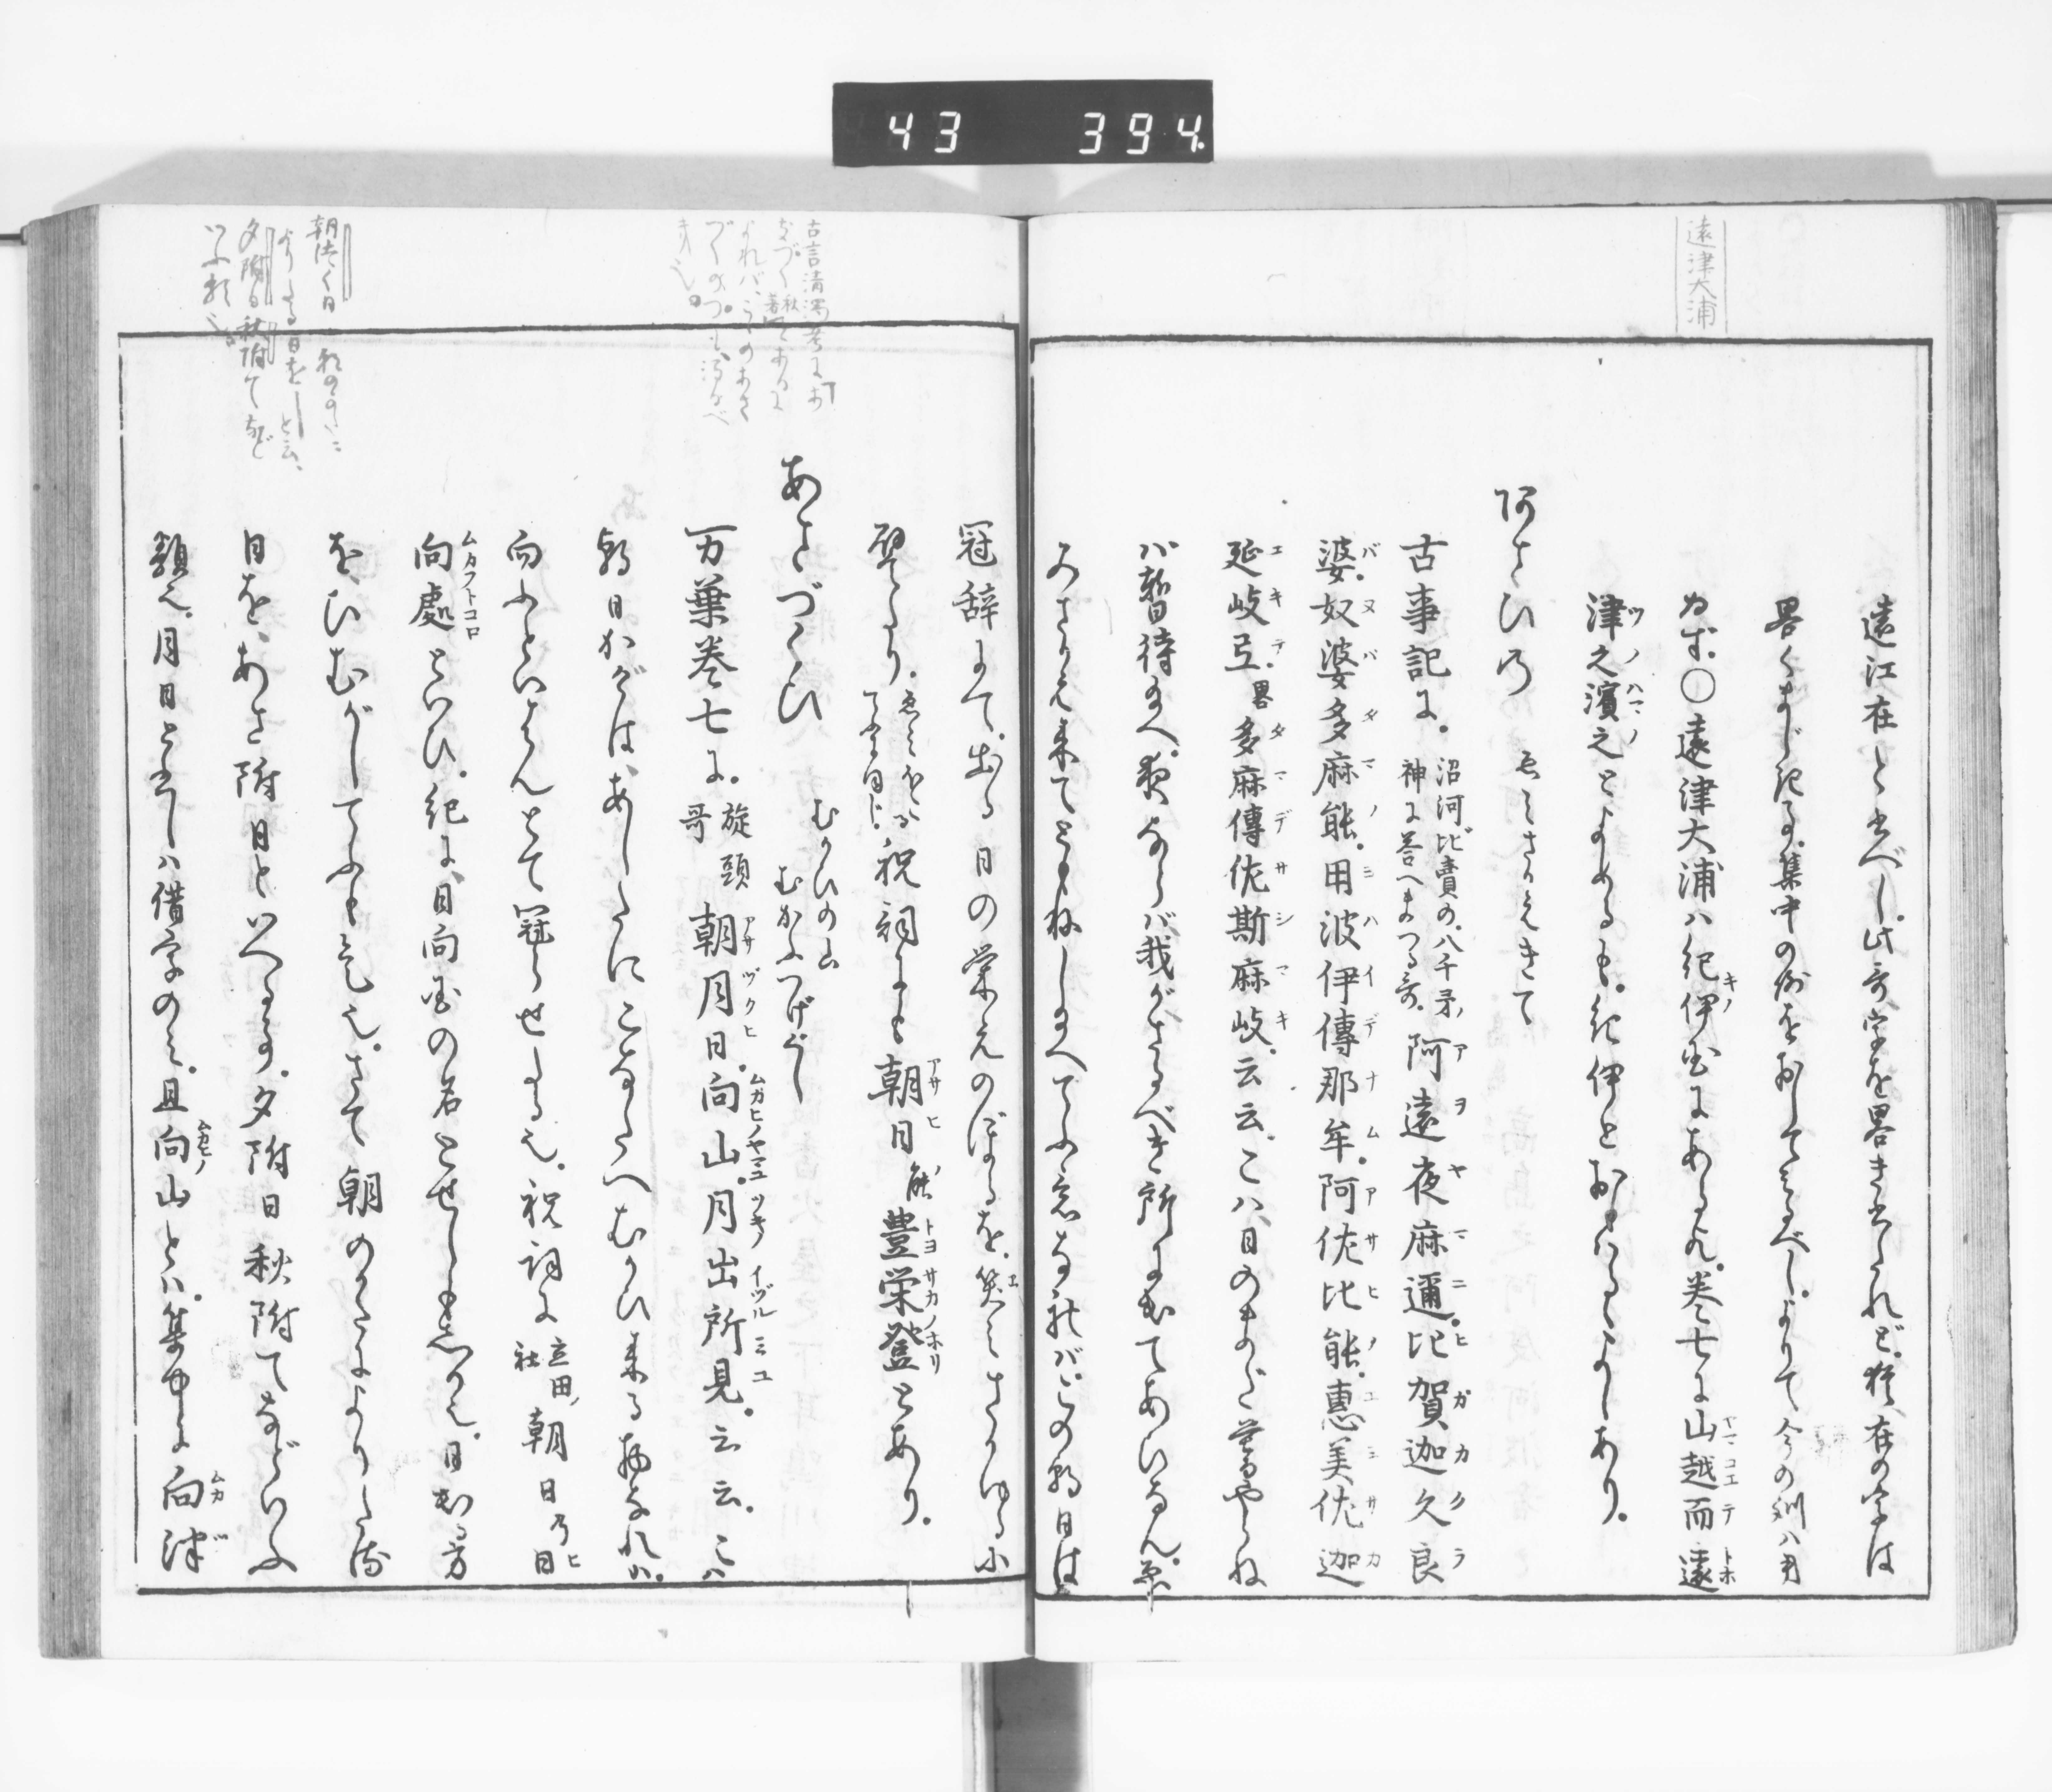 43 394
遠津大浦
遠江在と書べし。此哥、字を畧き書たれど、猶、在の字は
畧くまじき事、集中の例をおしてしるべし。よりて今の訓ハ用
ゐず。〇遠津大浦ハ紀伊国にあるか。巻七に山越而遠
津之濱之とよめるも、紀伊とおもはるゝよしあり。
阿さひの ゑみさかえきて
古事記に。沼河比賣の、八千矛ノ神に答へまつる哥。阿遠夜麻邇。比賀迦久良
婆。奴婆多麻能。用波伊傳那牟。阿佐比能。恵美佐迦
延岐弖。畧多麻傳佐斯麻岐。云云。こハ、日のまのいと暮やらね
バ暫待給へ。夜ならバ我がさるべき所に出てあひなん。
みさかえ来てともねし給へてふ意なれバ、この朝日は
冠辞にて、出る日の栄えのぼるを、笑みさかゆるに
譬たり。祝詞にも朝日能豊栄登とあり。
あさづくひ むかひの山 むかふつげぐし
万葉巻七に。旋頭哥 朝月日。向山。月出所見。云云。こハ
朝日かげは、あしたにこなたへむかひ来る物なれバ、
向ふといはんとて冠らせたる也。祝詞に立田ノ社 朝日乃日
向處といひ。紀に、日向国の名とせしも然り。日出る方
を、ひむがしてふも是也。さて朝のかたによりたる
日を、あさ附日といへる事。夕附日秋附てなどいふ
類也。月日と書しハ借字のみ。且向山とハ。集中に向津
古言清濁考にあ
さづく秋著てあるに
よればこゝのあさ
づくのつも濁るべ
き也。
朝附く日 朝のかたに
よりたる日をと云、
夕附日秋附てなど
いふ類也。